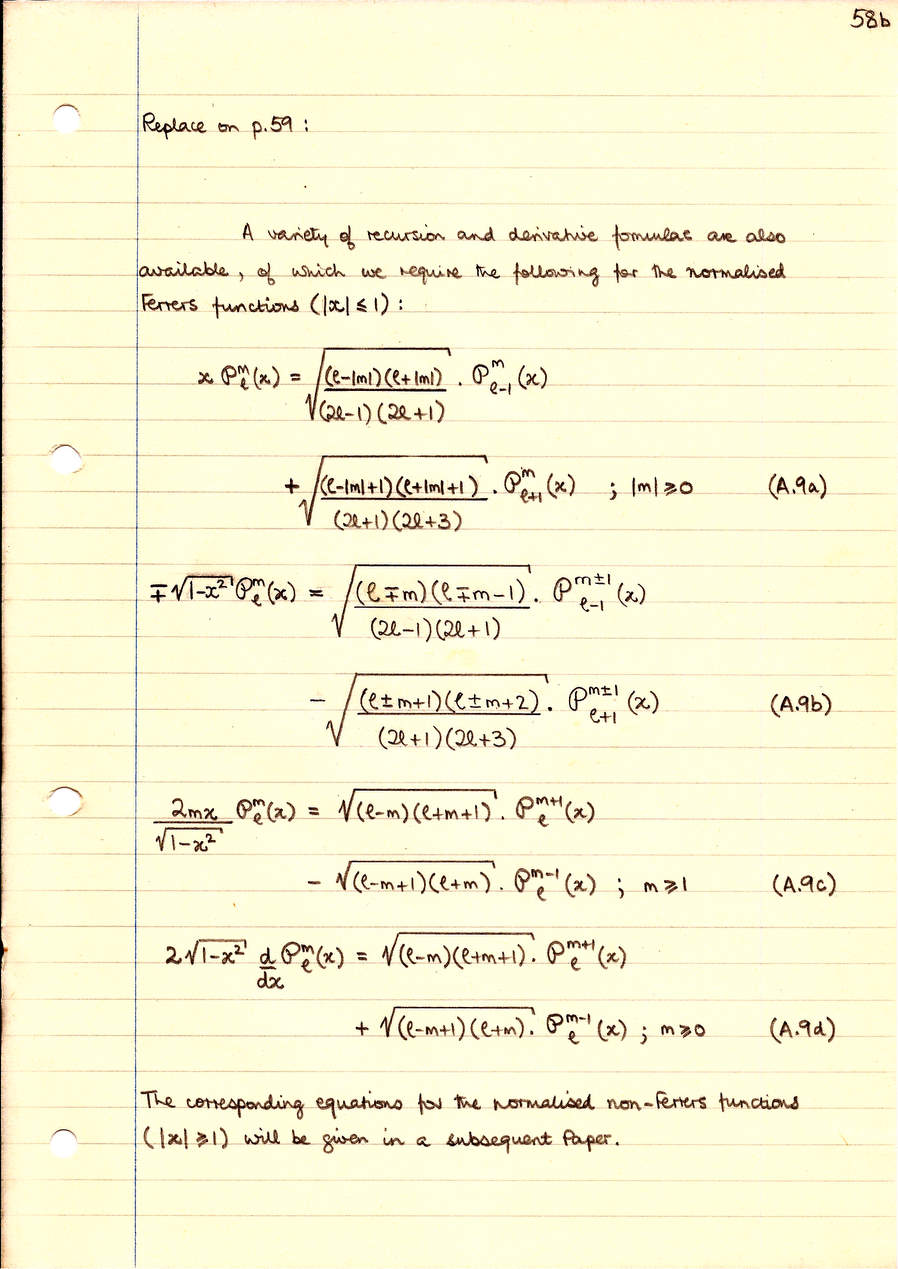 58b
Replace on p.59 :
A variety of recursion and derivative formulae are also
available, of which we require the following for the normalised
Ferrers functions (|x| ≤ 1) :
x 𝒫_ℓ^m(x) = √[(ℓ-|m|)(ℓ+|m|) / (2ℓ-1)(2ℓ+1)] . 𝒫_{ℓ-1}^m (x)
+ √[(ℓ-|m|+1)(ℓ+|m|+1) / (2ℓ+1)(2ℓ+3)] . 𝒫_{ℓ+1}^m (x) ; |m| ≥ 0 (A.9a)
∓ √(1-x²) 𝒫_ℓ^m(x) = √[(ℓ∓m)(ℓ∓m-1) / (2ℓ-1)(2ℓ+1)] . 𝒫_{ℓ-1}^{m±1} (x)
- √[(ℓ±m+1)(ℓ±m+2) / (2ℓ+1)(2ℓ+3)] . 𝒫_{ℓ+1}^{m±1} (x) (A.9b)
2mx / √(1-x²) 𝒫_ℓ^m(x) = √((ℓ-m)(ℓ+m+1)) . 𝒫_ℓ^{m+1}(x)
- √((ℓ-m+1)(ℓ+m)) . 𝒫_ℓ^{m-1}(x) ; m ≥ 1 (A.9c)
2√(1-x²) d/dx 𝒫_ℓ^m(x) = √((ℓ-m)(ℓ+m+1)) . 𝒫_ℓ^{m+1}(x)
+ √((ℓ-m+1)(ℓ+m)) . 𝒫_ℓ^{m-1}(x) ; m ≥ 0 (A.9d)
The corresponding equations for the normalised non-Ferrers functions
(|x| ≥ 1) will be given in a subsequent Paper.